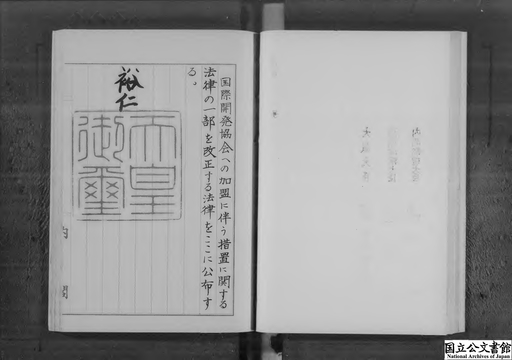 国際開発協会への加盟に伴う措置に関する
法律の一部を改正する法律をここに公布す
る。
裕仁
天皇
御璽
内閣
国立公文書館
National Archives of Japan